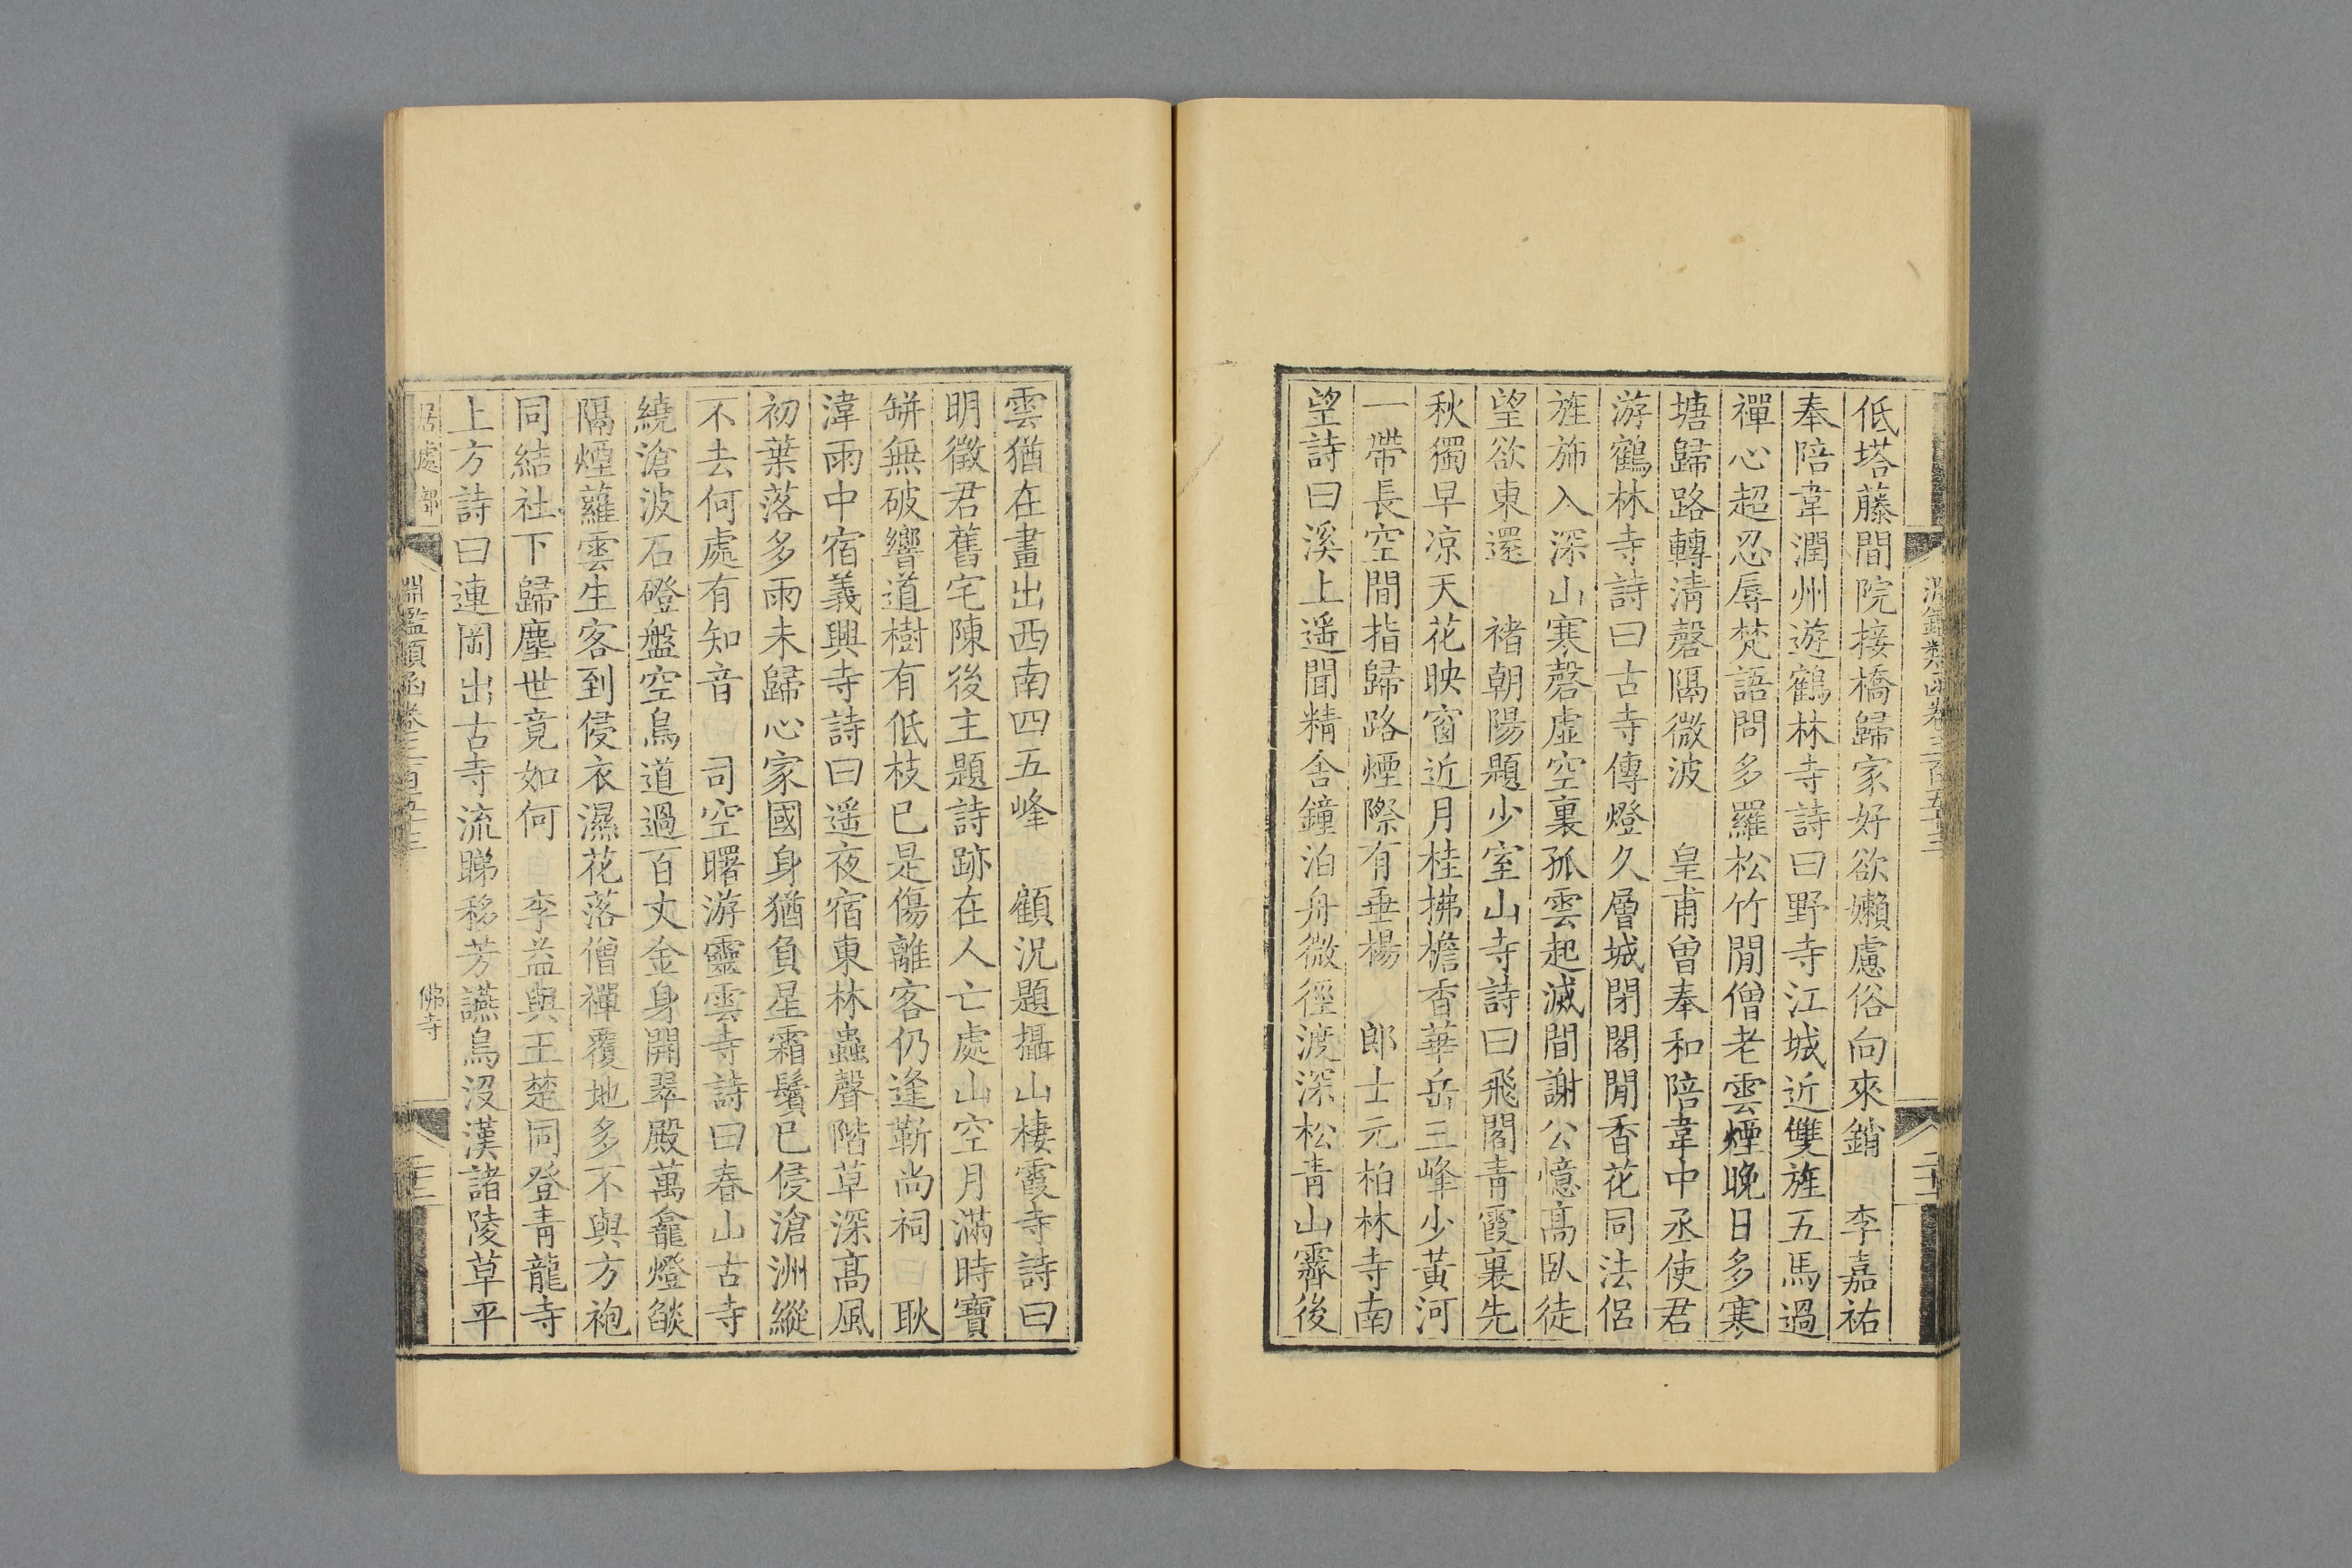 淵鑑類函卷三百五十三
低塔藤間院接橋歸家好欲嬾慮俗向來銷　李嘉祐
奉陪韋潤州遊鶴林寺詩曰野寺江城近雙旌五馬過
禪心超忍辱梵語問多羅松竹閒僧老雲煙晚日多寒
塘歸路轉清磬隔微波　皇甫曾奉和陪韋中丞使君
游鶴林寺詩曰古寺傳燈久層城閉閣閒香花同法侶
旌斾入深山寒磬虛空裏孤雲起滅間謝公憶高臥徒
望欲東還　褚朝陽題少室山寺詩曰飛閣青霞裏先
秋獨早凉天花映窗近月桂拂檐香華岳三峰少黃河
一帶長空間指歸路煙際有垂楊　郎士元柏林寺南
望詩曰溪上遥聞精舍鐘泊舟微徑渡深松青山霽後
雲猶在畫出西南四五峰　顧況題攝山棲霞寺詩曰
明徵君舊宅陳後主題詩跡在人亡處山空月滿時寶
缾無破響道樹有低枝已是傷離客仍逢靳尚祠　耿
湋雨中宿義興寺詩曰遥夜宿東林蟲聲階草深高風
初葉落多雨未歸心家國身猶負星霜鬢已侵滄洲縱
不去何處有知音　司空曙游靈雲寺詩曰春山古寺
繞滄波石磴盤空鳥道過百丈金身開翠殿萬龕燈燄
隔煙蘿雲生客到侵衣濕花落僧禪覆地多不與方袍
同結社下歸塵世竟如何　李益與王楚同登青龍寺
上方詩曰連岡出古寺流睇移芳讌鳥沒漢諸陵草平
居處部　淵鑑類函卷三百五十三　佛寺